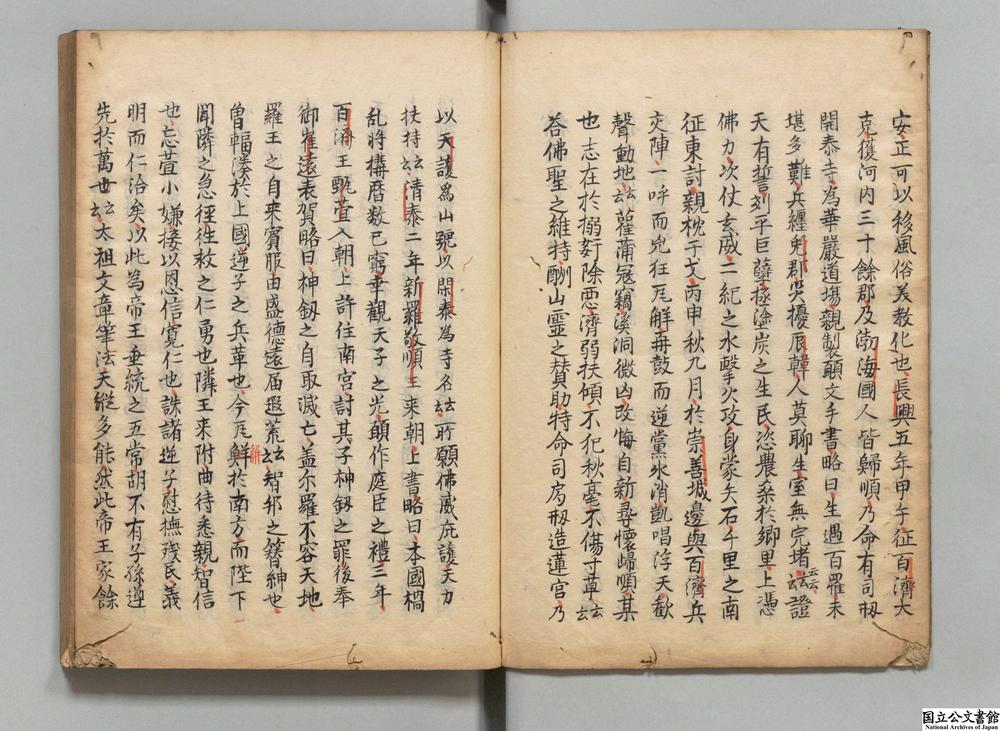 安正可以移風俗美教化也長興五年甲午征百濟大
克獲河内三十餘郡及渤海國人皆歸順乃命有司刱
開泰寺為華嚴道場親製願文手書略曰生遇百罹未
堪多難兵纏兎郡災擾辰韓人莫聊生室無完堵云云證
天有誓剗平巨孽拯塗炭之生民恣農桑於鄉里上憑
佛力次仗玄威二紀之水擊火攻身蒙矢石千里之南
征東討親枕干戈丙申秋九月於崇善城邊與百濟兵
交陣一呼而兇狂瓦解再鼓而逆黨氷消凱唱浮天歡
聲動地云雚蒲寇竊溪洞微凶改悔自新尋懷歸順某
也志在於搦姧除惡濟弱扶傾不犯秋毫不傷寸草云云
荅佛聖之維持酬山靈之賛助特命司局刱造蓮宮乃
以天護為山號以開泰為寺名云云所願佛威庇護天力
扶持云云清泰二年新羅敬順王来朝上書略曰本國橺
乱將搆曆数已窮幸觀天子之光願作庭臣之禮三年
百濟王甄萱入朝上許住南宮討其子神釼之罪後奉
御崔遠表賀略曰神釼之自取滅亡盖尓羅不容天地
羅王之自来賓服由盛德遠届遐荒云云智邦之簪紳也
曽輻湊於上國逆子之兵革也今瓦鮮於南方而陛下
解
聞隣之急徑徃救之仁勇也隣王来附曲待悉親智信
也忘萱小嫌接以恩信寛仁也誅諸逆子慰撫残民義
明而仁洽矣以此為帝王垂統之五常胡不有子孫遵
先於萬世云云太祖文章筆法天縱多能然此帝王家餘
国立公文書館
National Archives of Japan